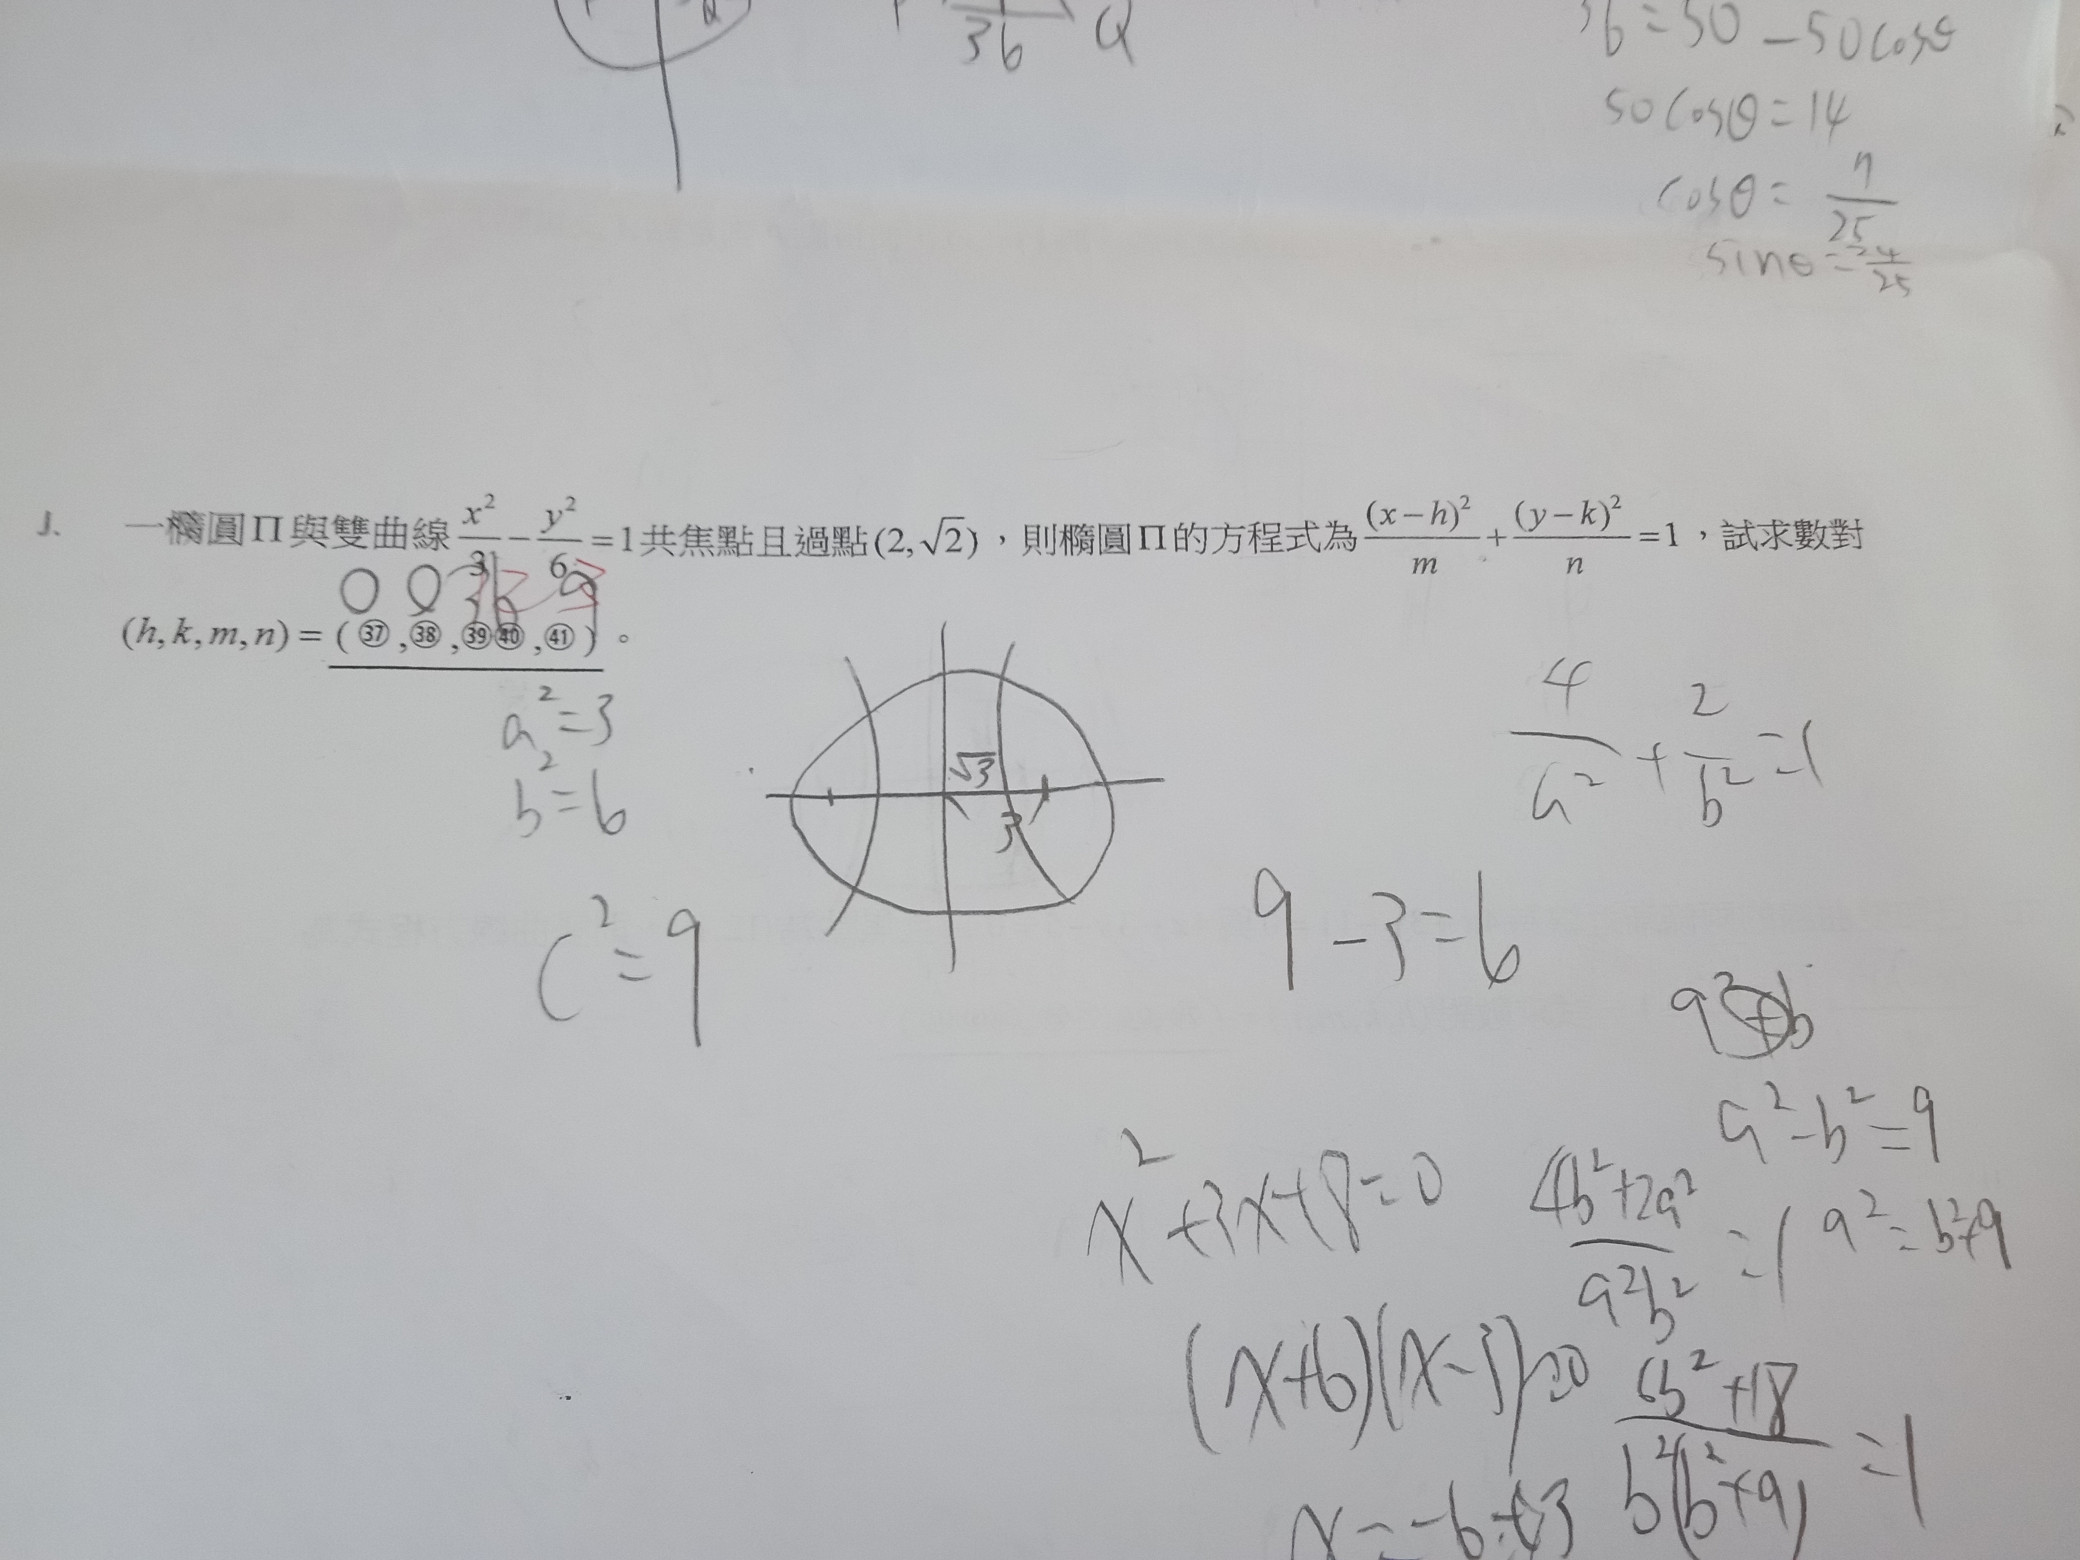 36 Q
36=50-50cosθ
50cosθ=14
cosθ=7/25
sinθ=24/25
J. 一橢圓Π與雙曲線x²/3-y²/6=1共焦點且過點(2,√2),則橢圓Π的方程式為(x-h)²/m+(y-k)²/n=1,試求數對
0 0
(h,k,m,n)=(㊲,㊳,㊴㊵,㊶)。
a²=3
b²=6
c²=9
√3
3
4/a²+2/b²=1
9-3=6
a²-b²=9
a²=b²+9
(4b²+2a²)/(a²b²)=1
(6b²+18)/(b²(b²+9))=1
x²+3x+18=0
(x+6)(x-3)=0
x=-6